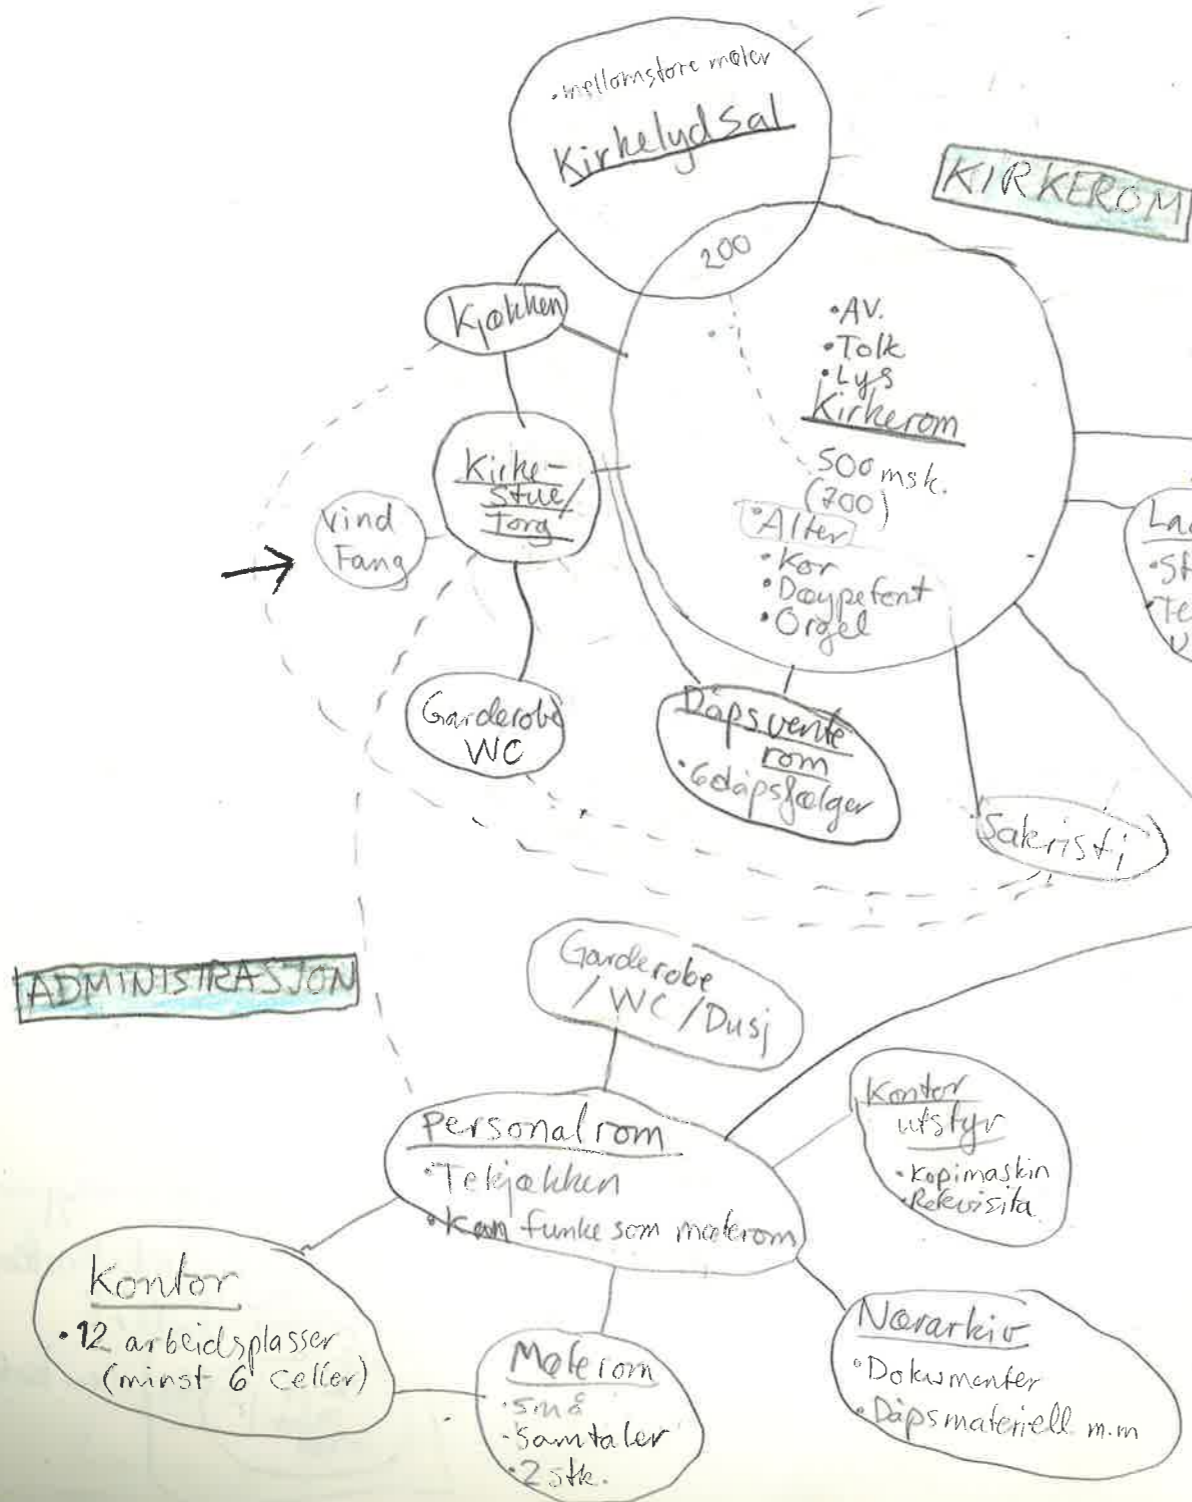 • mellomstore møter
Kirkelyd Sal
KIRKEROM
200
Kjøkken
• AV.
• Tolk
• Lys
Kirkerom
500 msk.
(700)
• Alter
• Kor
• Døypefont
• Orgel
Kirke-
stue/
Torg
Vind
Fang
Garderobe
WC
Dåpsvente
rom
• 6 dåpsfølger
Sakristi
ADMINISTRASJON
Garderobe
/ WC / Dusj
Kontor
utstyr
• Kopimaskin
• Rekvisita
Personalrom
• Tekjøkken
• Kan funke som møterom
Kontor
• 12 arbeidsplasser
(minst 6 celler)
Møterom
• små
- samtaler
• 2 stk.
Nærarkiv
• Dokumenter
• Dåpsmateriell m.m